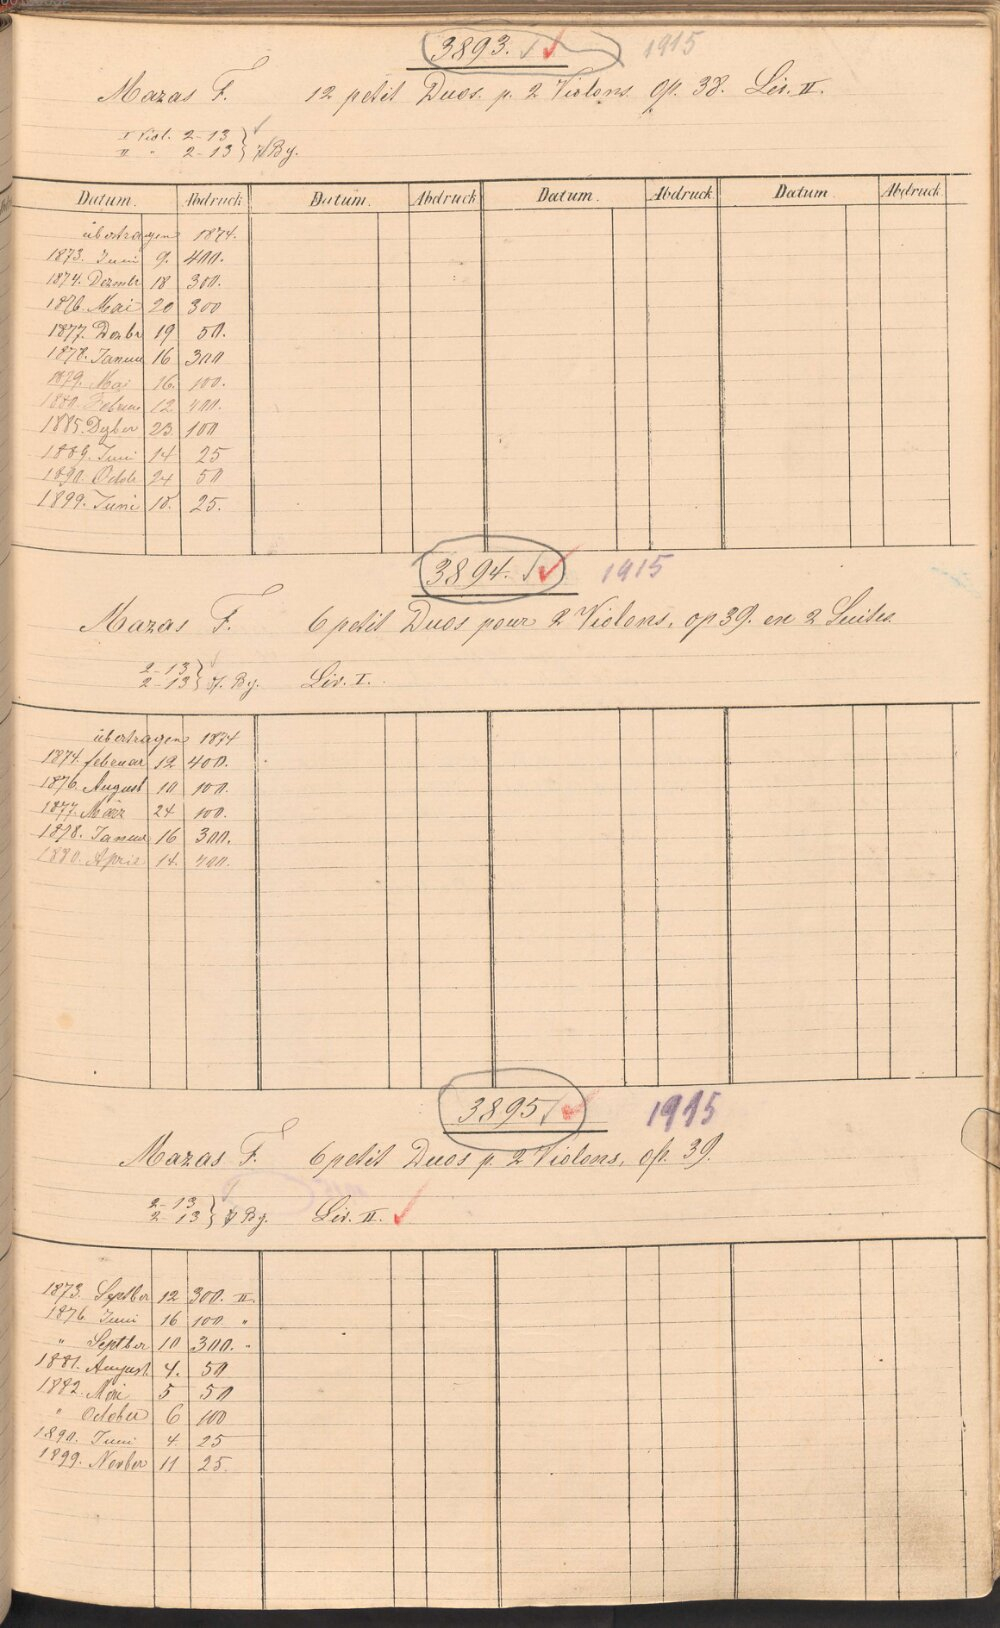 3893. 1915
Mazas F. 12 petit Duos. p. 2 Violons. Op. 38. Liv. II.
I Viol. 2-13
II " 2-13 } By.
Datum. Abdruck Datum. Abdruck Datum. Abdruck. Datum Abdruck.
übertragen 1874.
1873. Juni 9. 400.
1874. Dezmbr 18 300.
1876. Mai 20 300
1877. Dezbr 19 50.
1878. Januar 16 300
1879. Mai 16. 100.
1880. Februar 12
1885. Dezber 23 100
1889. Juni 14 25
1890. Octobr 24 50
1899. Juni 10. 25.
3894. 1915
Mazas F. 6 petit Duos pour 2 Violons, op 39. en 2 Suites.
2-13
2-13 } By. Liv. I.
übertragen 1874
1874. februar 12 400.
1876. August 10 100.
1877. März 24 100.
1878. Januar 16 300.
1880. April 14.
3895 1915
Mazas F. 6 petit Duos p. 2 Violons, op. 39.
2-13
2 13 } By. Liv. II.
1873. Septber 12 300. II.
1876. Juni 16 100 "
" Septber 10 300. "
1881. August 4. 50
1882. Mai 5 50
" October 6 100
1890. Juni 4. 25
1899. Novber 11 25.